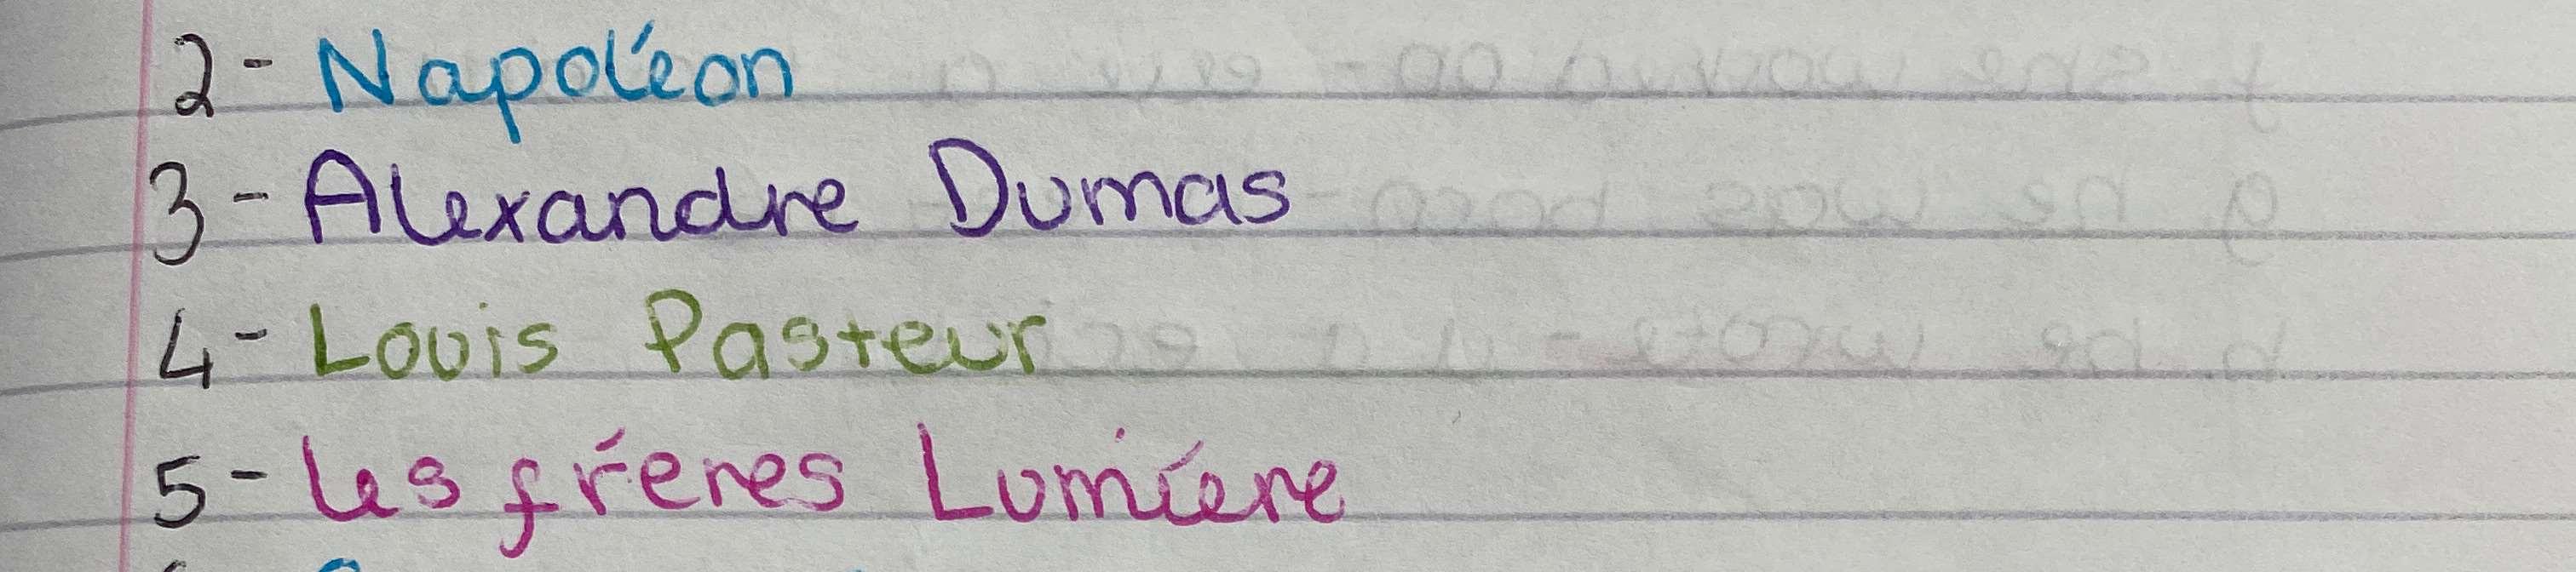 2- Napoléon
3- Alexandre Dumas
4- Louis Pasteur
5- les fréres Lumíere